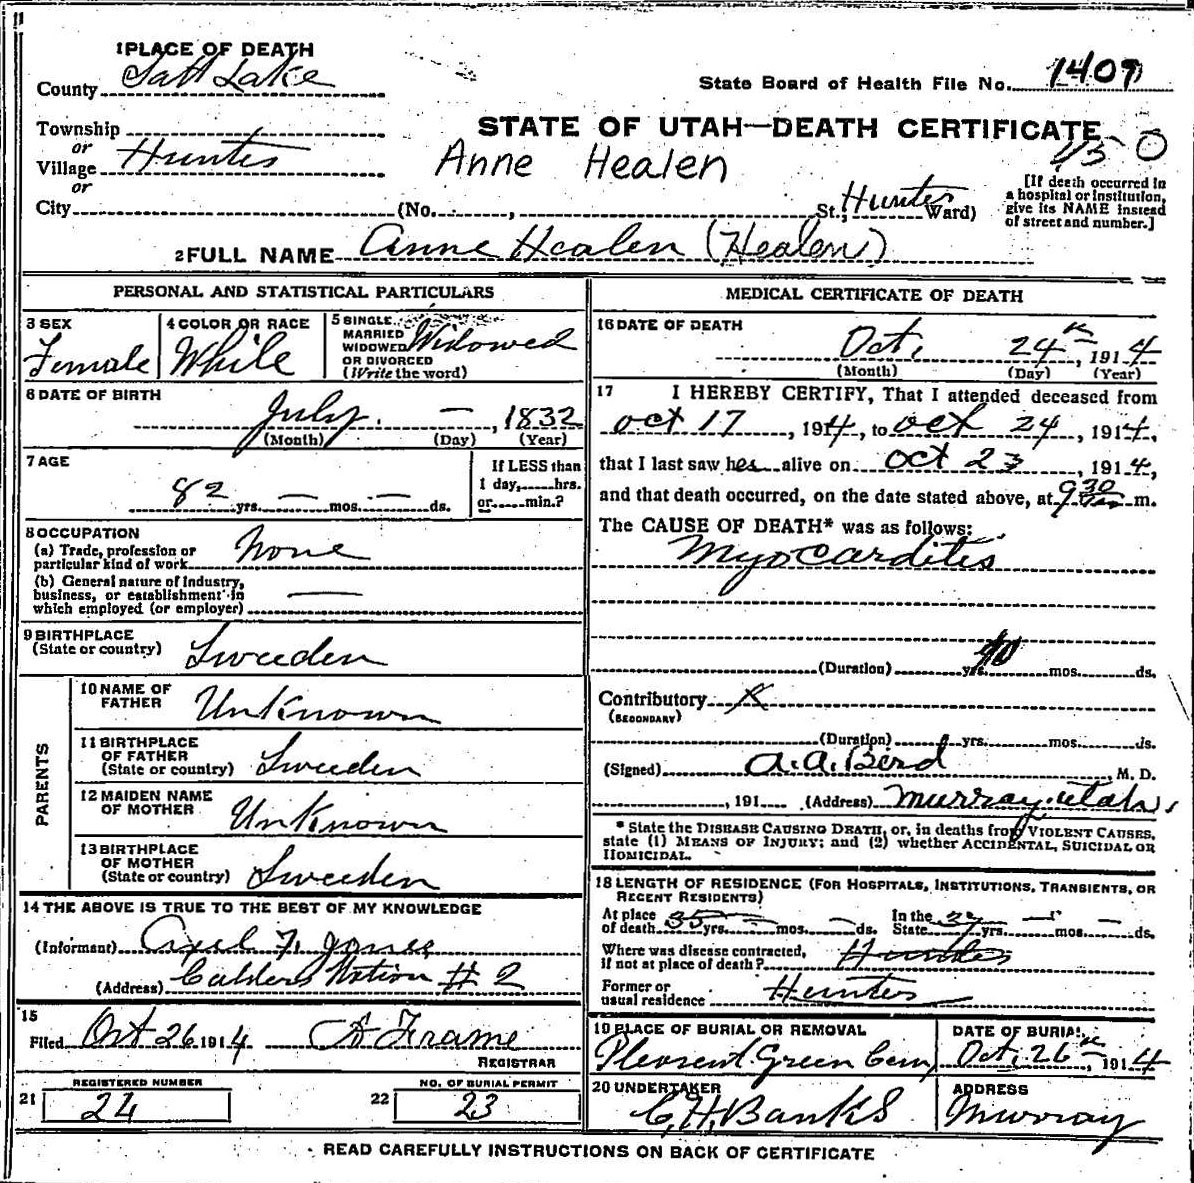 1 PLACE OF DEATH
County Salt Lake
State Board of Health File No. 1409
Township
or
Village Hunter
or
City (No. , St., Hunter Ward)
STATE OF UTAH—DEATH CERTIFICATE
Anne Healen
[If death occurred in
a hospital or institution,
give its NAME instead
of street and number.]
2 FULL NAME Anne Healen (Healen)
PERSONAL AND STATISTICAL PARTICULARS
3 SEX
Female
4 COLOR OR RACE
White
5 SINGLE,
MARRIED
WIDOWED
OR DIVORCED
(Write the word)
Widowed
6 DATE OF BIRTH
July — , 1832
(Month) (Day) (Year)
7 AGE
82 yrs. — mos. — ds.
If LESS than
1 day, hrs.
or min.?
8 OCCUPATION
(a) Trade, profession or
particular kind of work None
(b) General nature of industry,
business, or establishment in
which employed (or employer) —
9 BIRTHPLACE
(State or country) Sweeden
PARENTS
10 NAME OF
FATHER Unknown
11 BIRTHPLACE
OF FATHER
(State or country) Sweeden
12 MAIDEN NAME
OF MOTHER Unknown
13 BIRTHPLACE
OF MOTHER
(State or country) Sweeden
14 THE ABOVE IS TRUE TO THE BEST OF MY KNOWLEDGE
(Informant) Axel F. Jones
(Address) Calders Station #2
15
Filed Oct 26 1914 A Frame
REGISTRAR
REGISTERED NUMBER
21 24
NO. OF BURIAL PERMIT
22 23
MEDICAL CERTIFICATE OF DEATH
16 DATE OF DEATH
Oct. 24th, 1914
(Month) (Day) (Year)
17 I HEREBY CERTIFY, That I attended deceased from
Oct 17, 1914, to Oct 24, 1914,
that I last saw her alive on Oct 23, 1914,
and that death occurred, on the date stated above, at 930 m.
The CAUSE OF DEATH* was as follows:
Myocarditis
(Duration) yrs. mos. ds.
Contributory X
(SECONDARY)
(Duration) yrs. mos. ds.
(Signed) A. A. Bird, M. D.
, 191 (Address) Murray Utah,
* State the DISEASE CAUSING DEATH, or, in deaths from VIOLENT CAUSES,
state (1) MEANS OF INJURY; and (2) whether ACCIDENTAL, SUICIDAL OR
HOMICIDAL.
18 LENGTH OF RESIDENCE (FOR HOSPITALS, INSTITUTIONS, TRANSIENTS, OR
RECENT RESIDENTS)
At place
of death 35 yrs. — mos. — ds.
In the
State yrs. — mos. — ds.
Where was disease contracted,
if not at place of death? Hunter
Former or
usual residence Hunter
19 PLACE OF BURIAL OR REMOVAL
Plesent Green Cem
DATE OF BURIAL
Oct. 26th, 1914
20 UNDERTAKER
C. H. Banks
ADDRESS
Murray
READ CAREFULLY INSTRUCTIONS ON BACK OF CERTIFICATE